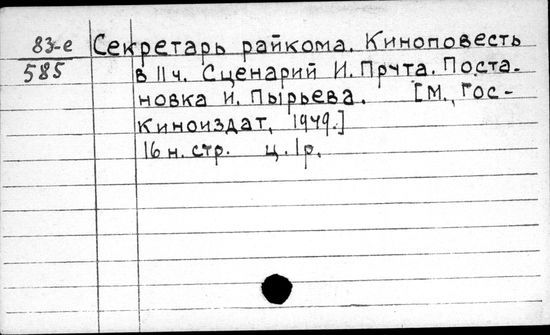 83-е Секретарь райкома. Киноповесть
585 в 11 ч. Сценарий И. Прута. Поста-
новка И. Пырьева. [М., Гос-
киноиздат, 1949.]
16 н. стр. ц. 1р.